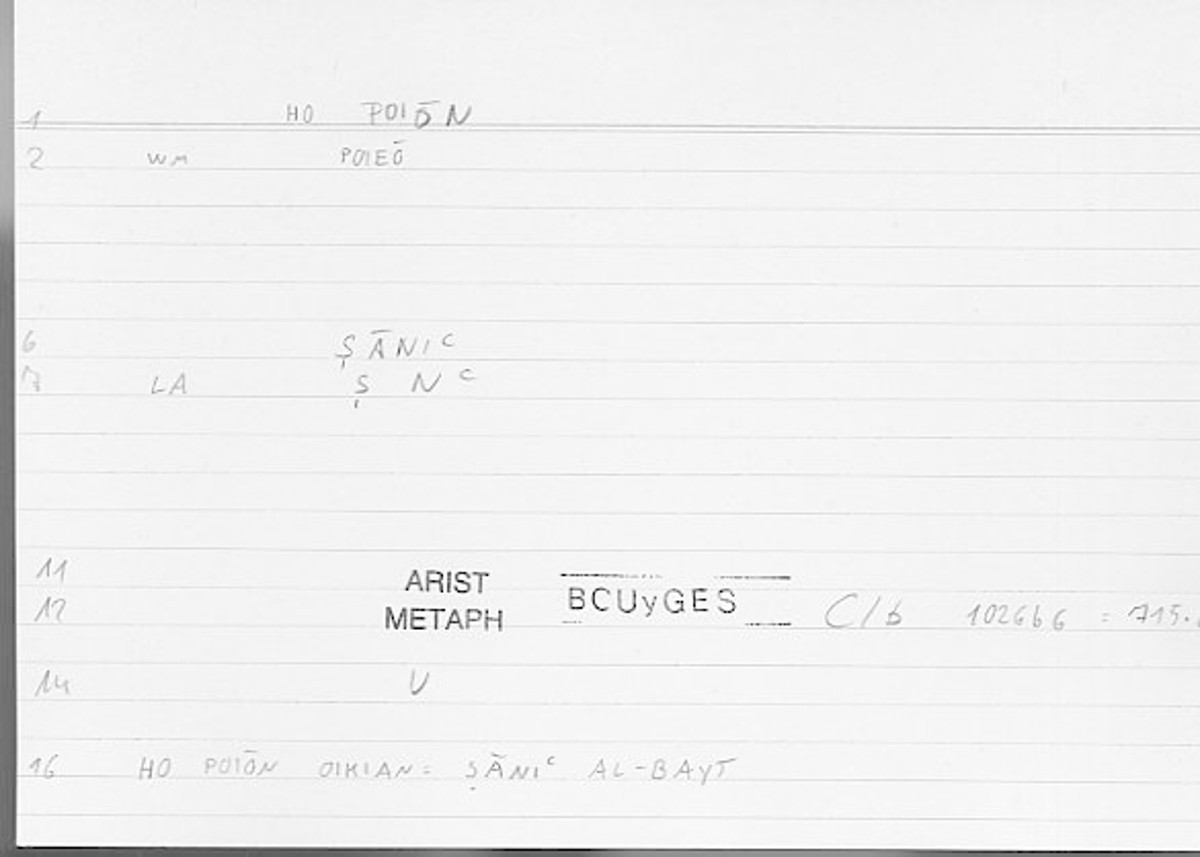 1 HO POIŌN
2 WM POIEŌ
6 ṢĀNIᶜ
7 LA Ṣ Nᶜ
11 ARIST
12 METAPH BCUyGES C/b 1026b6 = 715.
14 V
16 HO POIŌN OIKIAN = ṢĀNIᶜ AL-BAYT